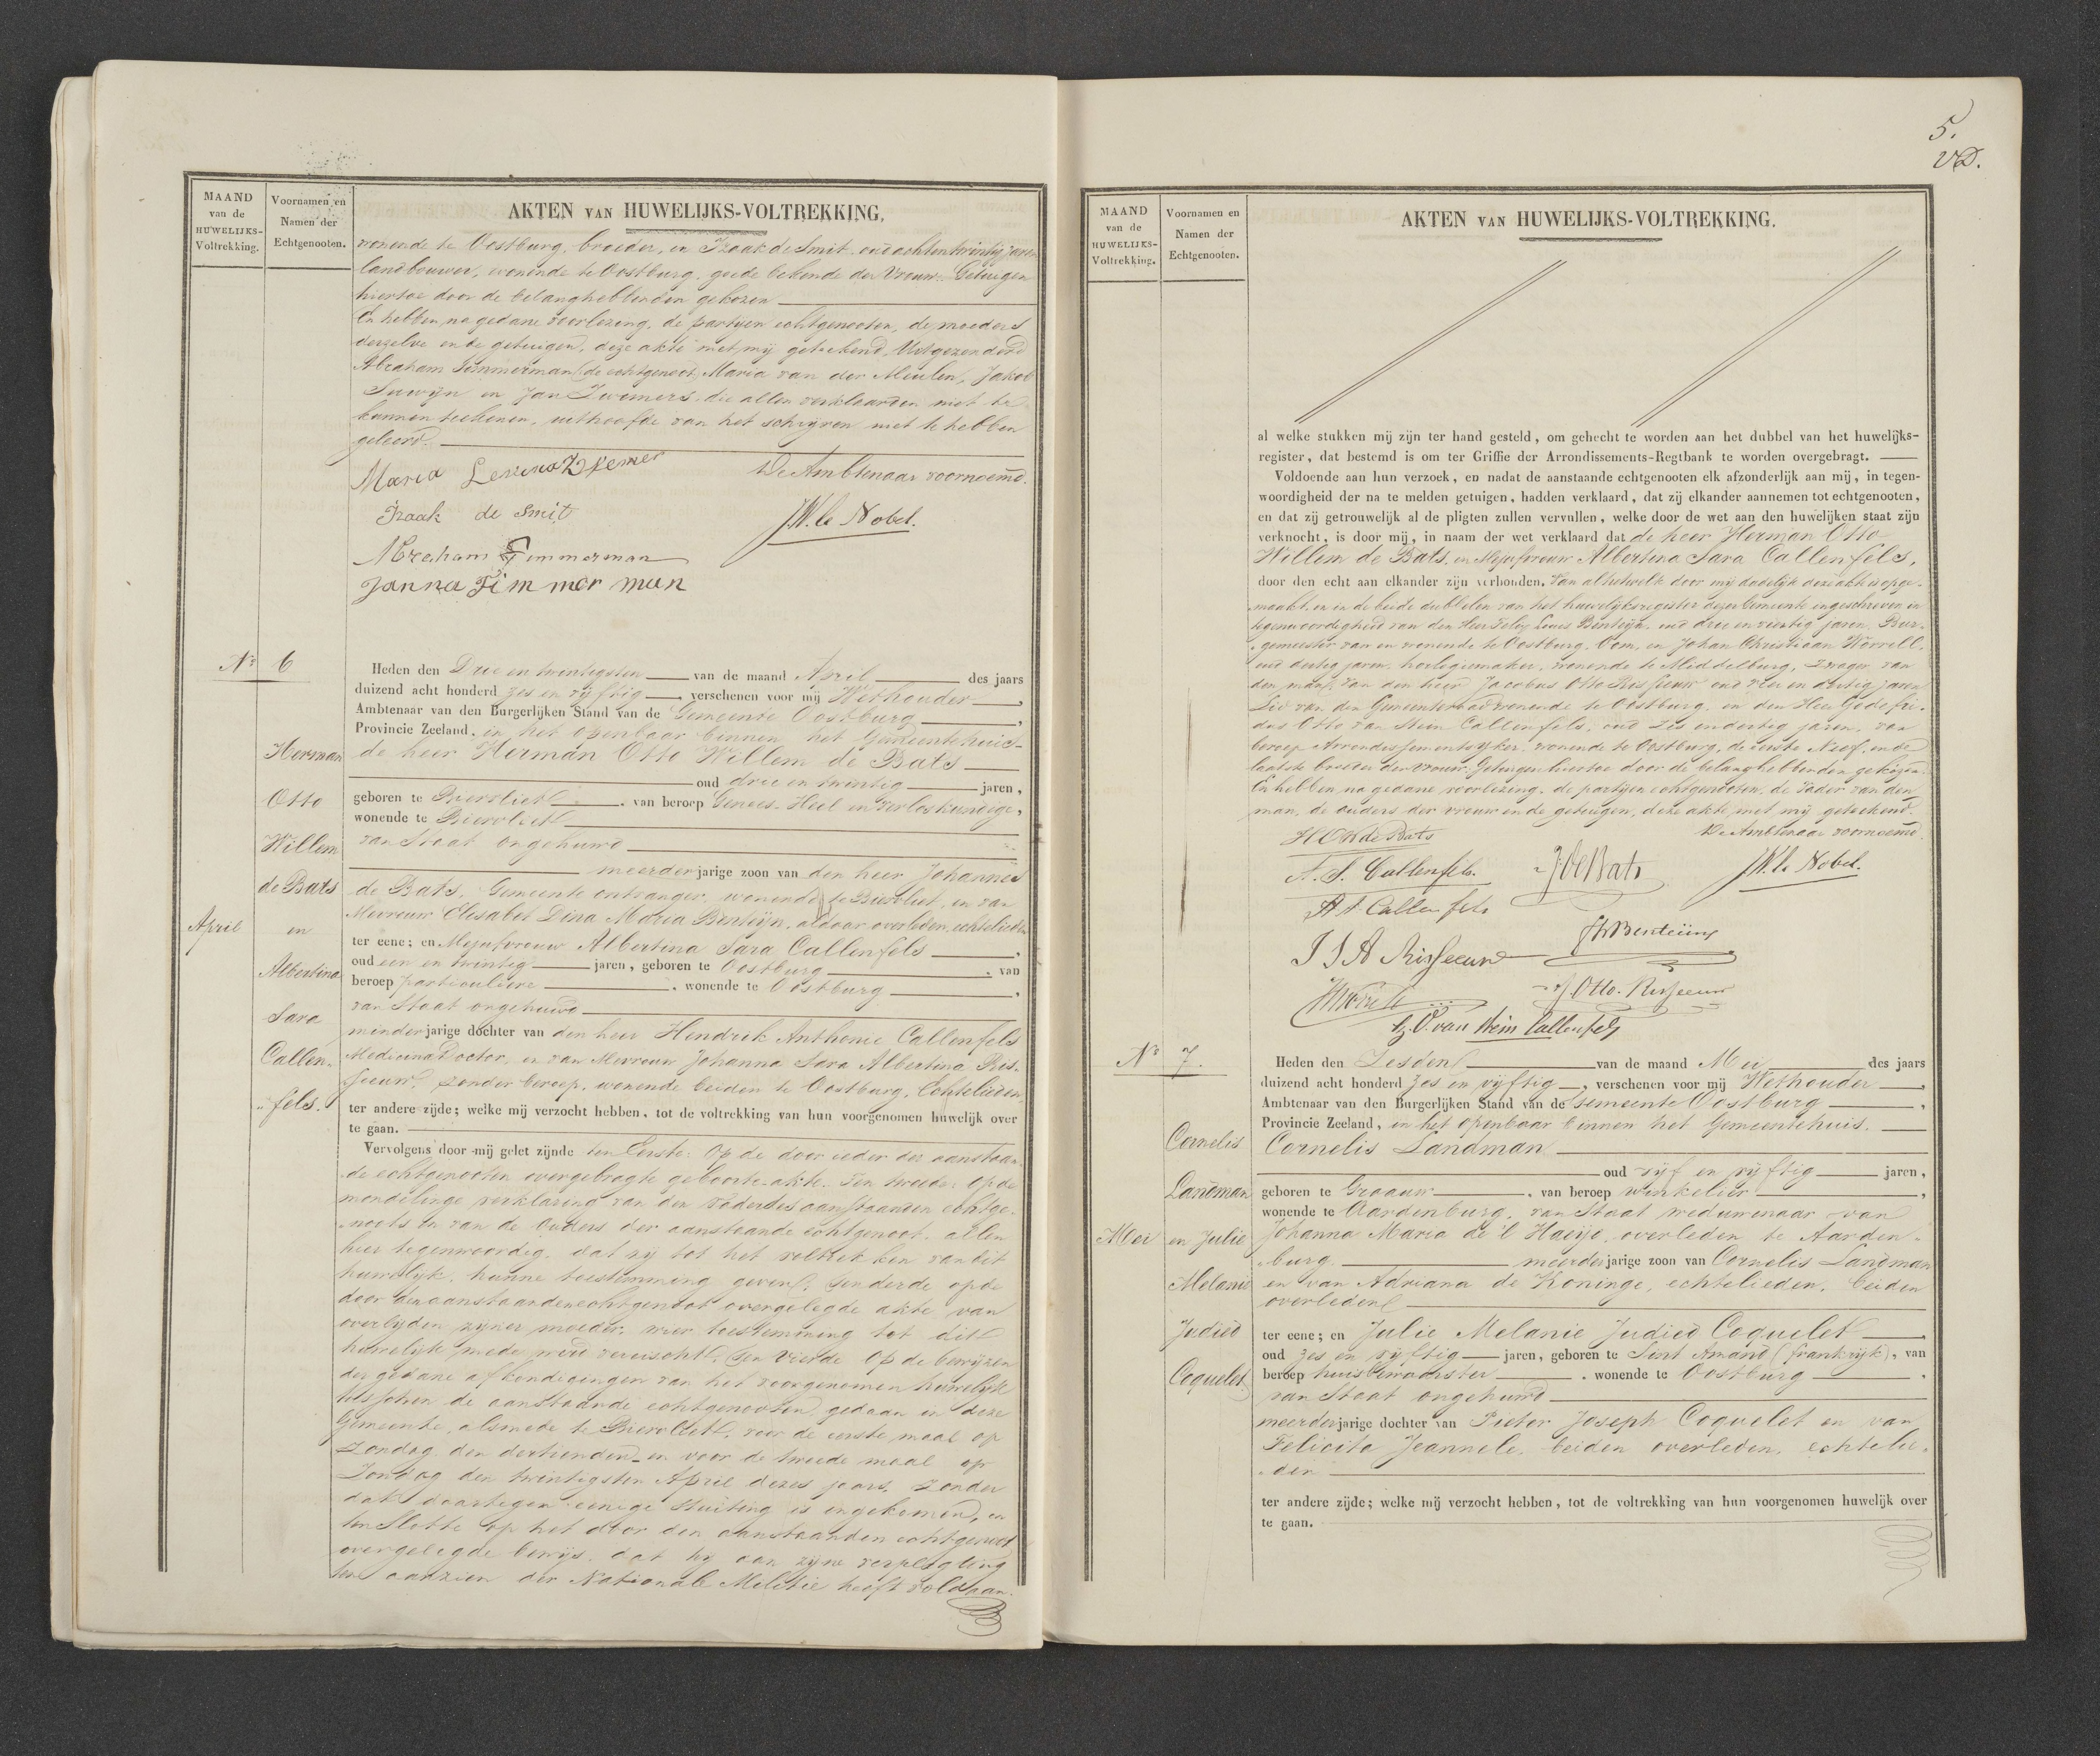 MAAND
van de
HUWELIJKS-
Voltrekking.
Voornamen en
Namen der
Echtgenooten.
AKTEN VAN HUWELIJKS-VOLTREKKING.
wonende te Oostburg, broeder, en Izaak de Smit, oud achtentwintig jaren
landbouwer, wonende te Oostburg, goede bekende der Vrouw. Getuigen
hiertoe door de belanghebbenden gekozen
En hebben, na gedane voorlezing, de partijen echtgenooten, de moeders
derzelve en de getuigen, deze akte met mij geteekend, Uitgezonderd
Abraham Timmerman de echtgenoot, Maria van der Meulen, Jakob
en Jan die allen verklaarden niet te
kunnen teekenen, uithoofde van het schrijven niet te hebben
geleerd.
Maria
De Ambtenaar voornoemd.
Izaak de Smit
J.W. le Nobel.
Abraham Timmerman
Janna Timmerman
No 6
Heden den Drie en twintigsten van de maand April des jaars
duizend acht honderd zes en vijftig, verschenen voor mij Wethouder,
Ambtenaar van den Burgerlijken Stand van de Gemeente Oostburg,
Provincie Zeeland, in het openbaar binnen het Gemeentehuis
de heer Herman Otto Willem de Bats
oud drie en twintig jaren,
geboren te Biervliet, van beroep Genees- Heel en Verloskundige,
wonende te Biervliet
van Staat ongehuwd
meerderjarige zoon van den heer Johannes
de Bats, Gemeente ontvanger, wonende te Biervliet, en van
Mevrouw Elisabet Dina Maria Benteijn, aldaar overleden, echtelieden
ter eene; en Mejufvrouw Albertina Sara Callenfels,
oud een en twintig jaren, geboren te Oostburg, van
beroep particuliere, wonende te Oostburg,
van Staat ongehuwd
minderjarige dochter van den heer Hendrik Anthonie Callenfels
Medicina Doctor, en van Mevrouw Johanna Sara Albertina Ris-
seeuw, zonder beroep, wonende beiden te Oostburg, Echtelieden
ter andere zijde; welke mij verzocht hebben, tot de voltrekking van hun voorgenomen huwelijk over
te gaan.
Vervolgens door mij gelet zijnde ten Eerste: Op de door ieder der aanstaan-
de echtgenooten overgebragte geboorte-akte. Ten tweede: Op de
mondelinge verklaring van den Vader des aanstaanden echtge-
noots en van de Ouders der aanstaande echtgenoot, allen
hier tegenwoordig, dat zij tot het voltrekken van dit
huwelijk, hunne toestemming geven. Ten derde op de
door den aanstaanden echtgenoot overgelegde akte van
overlijden zijner moeder, wier toestemming tot dit
huwelijk mede werd vereischt. Ten Vierde Op de bewijzen
der gedane afkondigingen van het voorgenomen huwelijk
tusschen de aanstaande echtgenooten, gedaan in deze
Gemeente, alsmede te Biervliet, voor de eerste maal op
Zondag den dertienden en voor de tweede maal op
Zondag den twintigsten April dezes jaars, zonder
dat daartegen eenige stuiting is ingekomen, en
ten Slotte op het door den aanstaanden echtgenoot
overgelegde bewijs, dat hij aan zijne verpligting
ten aanzien der Nationale Militie heeft voldaan.
April
Herman
Otto
Willem
de Bats
en
Albertina
Sara
Callen-
fels.
5.
MAAND
van de
HUWELIJKS-
Voltrekking.
Voornamen en
Namen der
Echtgenooten.
AKTEN VAN HUWELIJKS-VOLTREKKING.
al welke stukken mij zijn ter hand gesteld, om gehecht te worden aan het dubbel van het huwelijks-
register, dat bestemd is om ter Griffie der Arrondissements-Regtbank te worden overgebragt.
Voldoende aan hun verzoek, en nadat de aanstaande echtgenooten elk afzonderlijk aan mij, in tegen-
woordigheid der na te melden getuigen, hadden verklaard, dat zij elkander aannemen tot echtgenooten,
en dat zij getrouwelijk al de pligten zullen vervullen, welke door de wet aan den huwelijken staat zijn
verknocht, is door mij, in naam der wet verklaard dat de heer Herman Otto
Willem de Bats, en Mejufvrouw Albertina Sara Callenfels,
door den echt aan elkander zijn verbonden. Van al hetwelk door mij dadelijk deze akte is opge-
maakt, en in de beide dubbelen van het huwelijksregister dezer Gemeente ingeschreven in
tegenwoordigheid van den Heer Louis Benteijn, oud drie en veertig jaren, Bur-
gemeester van en wonende te Oostburg, Oom, en Johan Christiaan Worrell,
oud dertig jaren, horlogiemaker, wonende te Middelburg, Zwager van
den man, Van den heer Jacobus Otto Risseeuw oud vier en dertig jaren
Lid van den Gemeenteraad wonende te Oostburg, en den Heer Godefri-
dus Otto van Stein Callenfels, oud zes en dertig jaren, van
beroep Arrondissementsijker, wonende te Oostburg, de eerste Neef, en de
laatste broeder der vrouw, Getuigen hiertoe door de belanghebbenden gekozen.
En hebben na gedane voorlezing, de partijen echtgenooten, de Vader van den
man, de ouders der vrouw en de getuigen, deze akte met mij geteekend.
H O W de Bats
De Ambtenaar voornoemd.
A. S. Callenfels.
J. de Bats
J.W. le Nobel.
H A Callenfels
Benteijn
J S A Risseeuw
J. Otto. Risseeuw
G. O. van Stein Callenfels
No 7.
Heden den Zesden van de maand Mei des jaars
duizend acht honderd zes en vijftig, verschenen voor mij Wethouder,
Ambtenaar van den Burgerlijken Stand van de Gemeente Oostburg,
Provincie Zeeland, in het openbaar binnen het Gemeentehuis.
Cornelis Landman
oud vijf en vijftig jaren,
geboren te Graauw, van beroep winkelier,
wonende te Aardenburg, van Staat weduwenaar van
Johanna Maria de 't Haeije, overleden te Aarden-
burg. meerderjarige zoon van Cornelis Landman
en van Adriana de Koninge, echtelieden, beiden
overleden
ter eene; en Julie Melanie Judied Coquelet,
oud zes en vijftig jaren, geboren te Sint Amand (frankrijk), van
beroep huisbewaarster, wonende te Oostburg,
van Staat ongehuwd
meerderjarige dochter van Pieter Joseph Coquelet en van
Felicita Jeannele, beiden overleden, echtelie-
den
ter andere zijde; welke mij verzocht hebben, tot de voltrekking van hun voorgenomen huwelijk over
te gaan.
Mei
Cornelis
Landman
en Julie
Melanie
Judied
Coquelet